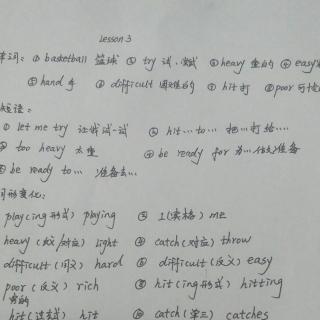 Lesson 3
单词: ① basketball 篮球 ② try 试、尝试 ③ heavy 重的 ④ easy
⑤ hand 手 ⑥ difficult 困难的 ⑦ hit 打 ⑧ poor 可怜
短语:
① let me try 让我试一试 ② hit...to... 把...打给....
③ too heavy 太重 ④ be ready for 为...做好准备
⑤ be ready to... 准备去...
词形变化:
play(ing形式) playing ⑤ I(宾格) me
heavy (反义/对应) light ⑥ catch(对应) throw
difficult(同义) hard ⑦ difficult(反义) easy
poor(反义) rich ⑧ hit(ing形式) hitting
穷的
hit(过去式) hit catch(单三) catches